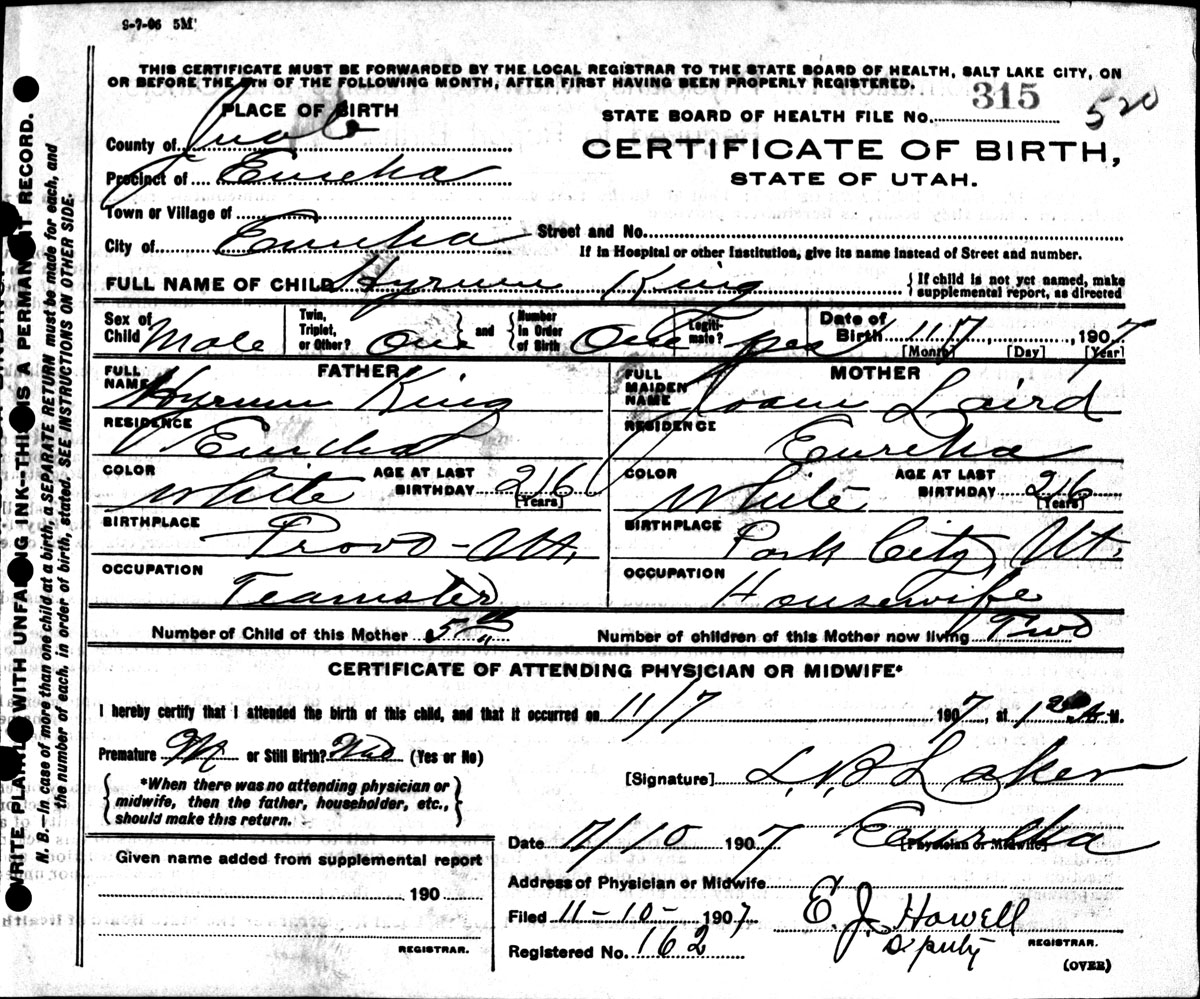 9-7-06 5M
THIS CERTIFICATE MUST BE FORWARDED BY THE LOCAL REGISTRAR TO THE STATE BOARD OF HEALTH, SALT LAKE CITY, ON
OR BEFORE THE 5TH OF THE FOLLOWING MONTH, AFTER FIRST HAVING BEEN PROPERLY REGISTERED.
PLACE OF BIRTH
STATE BOARD OF HEALTH FILE NO. 315 520
County of Juab
CERTIFICATE OF BIRTH,
Precinct of Eureka
STATE OF UTAH.
Town or Village of
City of Eureka Street and No.
If in Hospital or other Institution, give its name instead of Street and number.
FULL NAME OF CHILD Hyrum King {If child is not yet named, make
supplemental report, as directed
Sex of Child Male Twin, Triplet, or Other? One and Number in Order of Birth One Legiti-mate? yes Date of Birth 11 7, 1907
[Month] [Day] [Year]
FATHER
FULL NAME Hyrum King
RESIDENCE Eureka
COLOR White AGE AT LAST BIRTHDAY 26 [Years]
BIRTHPLACE Provo-Ut.
OCCUPATION Teamster
MOTHER
FULL MAIDEN NAME Joann Laird
RESIDENCE Eureka
COLOR White AGE AT LAST BIRTHDAY 26 [Years]
BIRTHPLACE Park City, Ut.
OCCUPATION Housewife
Number of Child of this Mother 5th Number of children of this Mother now living Two
CERTIFICATE OF ATTENDING PHYSICIAN OR MIDWIFE*
I hereby certify that I attended the birth of this child, and that it occurred on 11/7 1907, at 1 M.
Premature or Still Birth? (Yes or No)
[Signature] L. B. Laker
{*When there was no attending physician or
midwife, then the father, householder, etc.,
should make this return.}
Date 11/10 1907 Eureka
(Physician or Midwife)
Given name added from supplemental report
190
REGISTRAR.
Address of Physician or Midwife
Filed 11-10-1907 E. J. Howell
Registered No. 162 Deputy REGISTRAR.
(OVER)
WRITE PLAINLY WITH UNFADING INK--THIS IS A PERMANENT RECORD.
N. B.--In case of more than one child at a birth, a SEPARATE RETURN must be made for each, and
the number of each, in order of birth, stated. SEE INSTRUCTIONS ON OTHER SIDE.